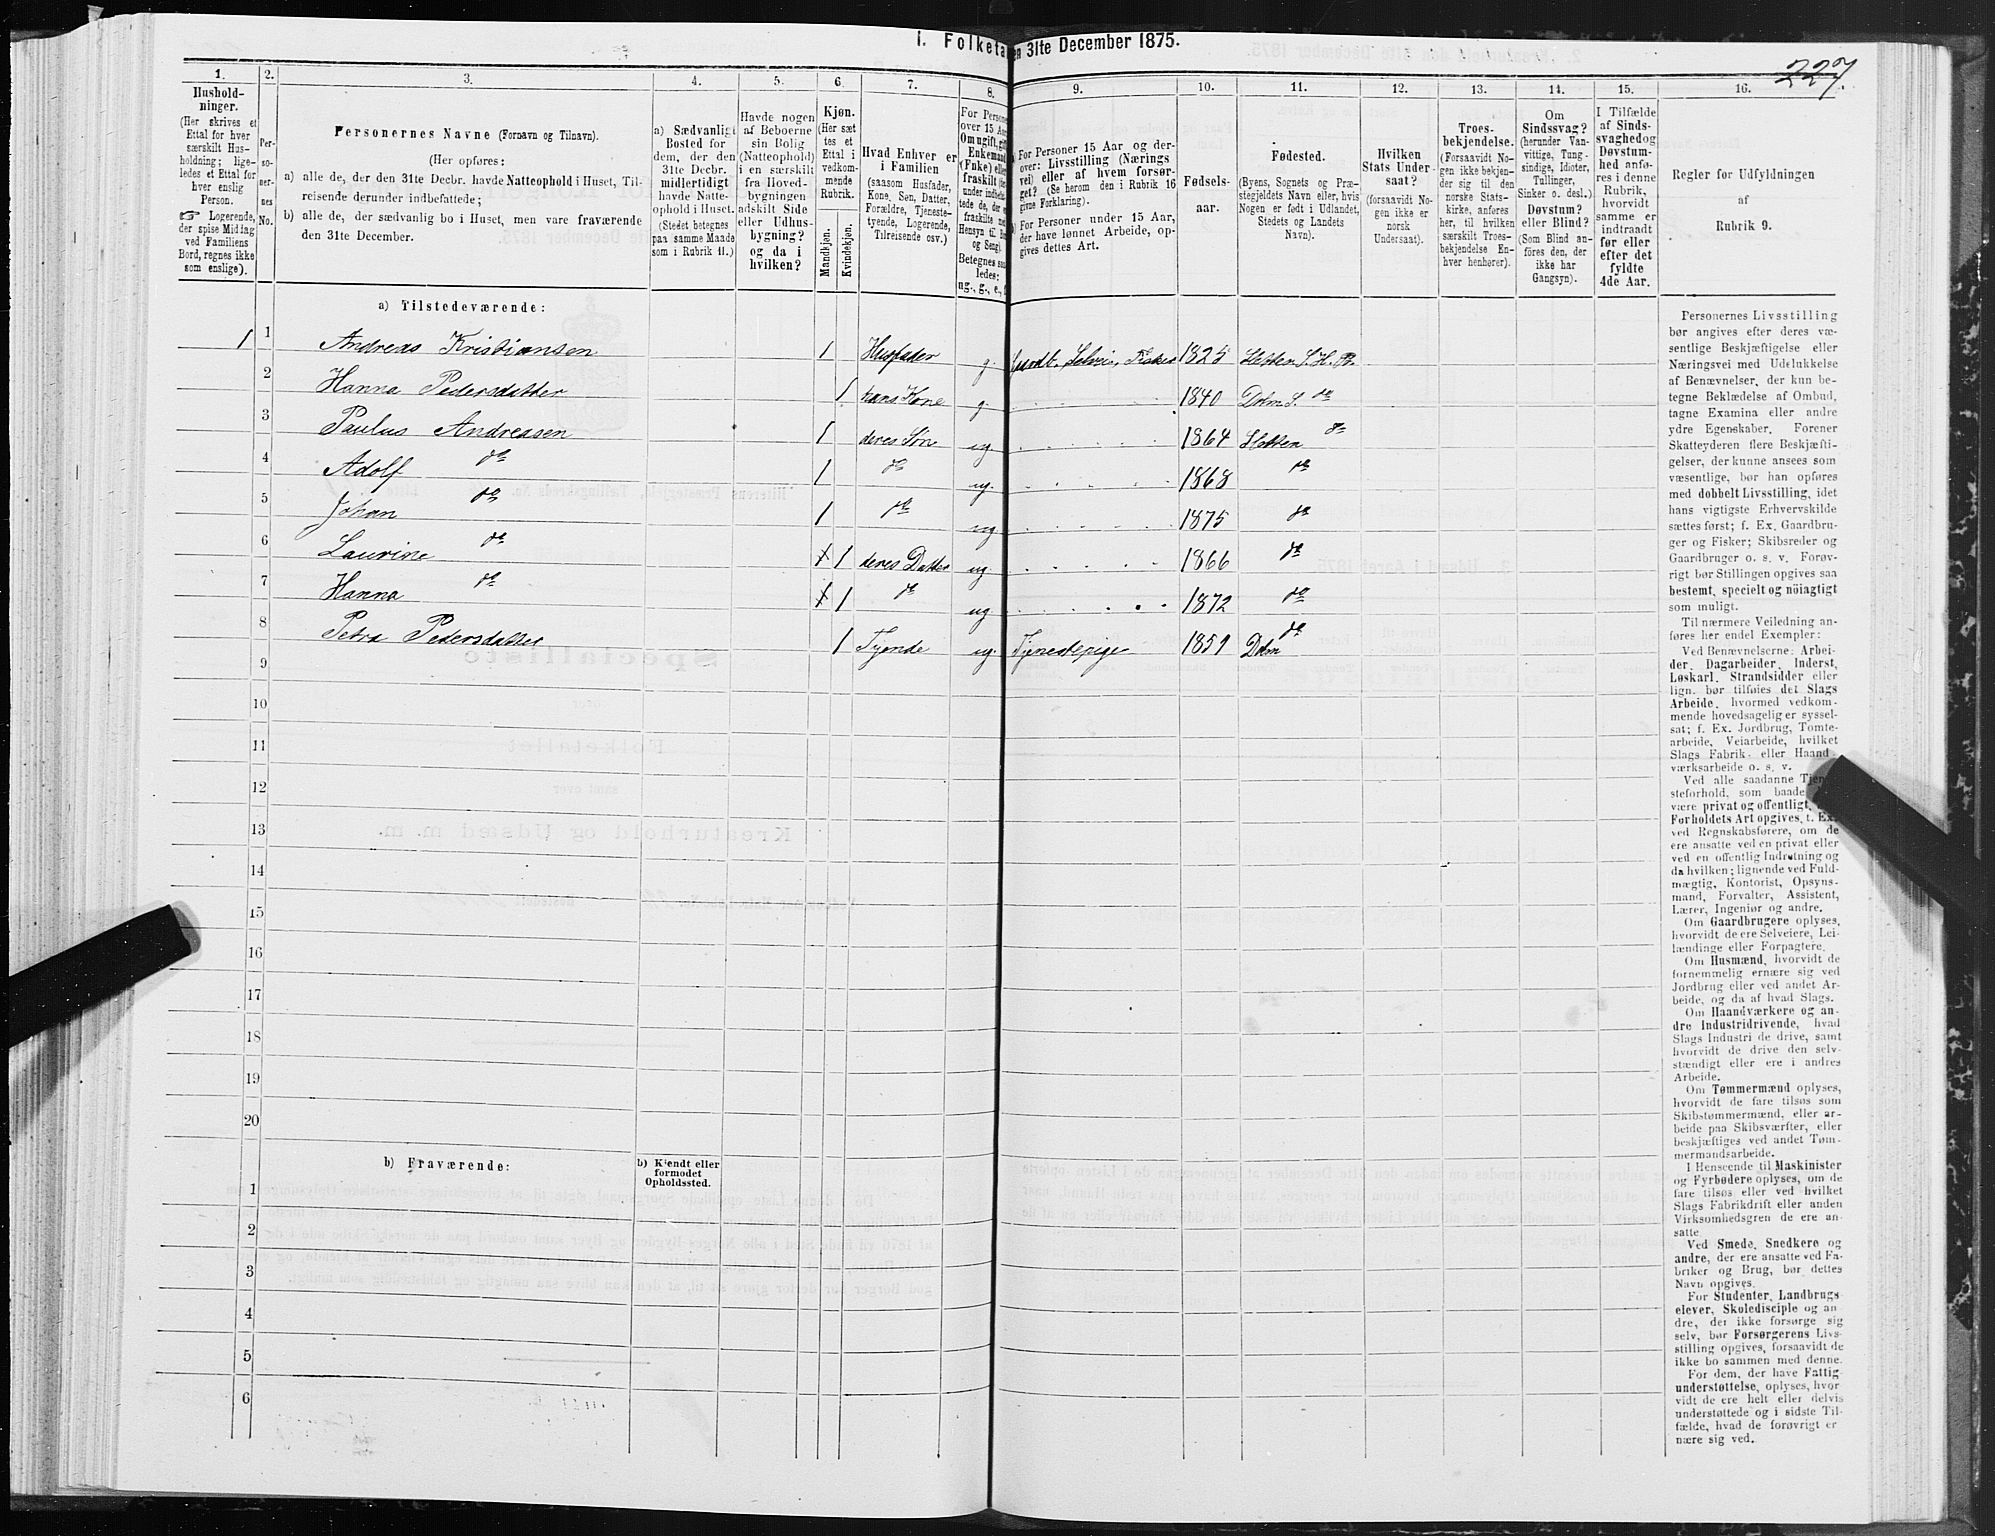 1. Folketa en 31te December 1875.
227.
1.
2.
3.
4.
5.
6.
7.
8.
9.
10.
11.
12.
13.
14.
15.
16.
Hushold-
ninger.
(Her skrives et
Ettal for hver
særskilt Hus-
holdning; lige-
ledes et Ettal for
hver enslig
Person.
☞ Logerende,
der spise Middag
ved Familiens
Bord, regnes ikke
som enslige).
Per-
so-
ner-
nes
No.
Personernes Navne (Fornavn og Tilnavn).
(Her opføres:
a) alle de, der den 31te Decbr. havde Natteophold i Huset, Til-
reisende derunder indbefattede;
b) alle de, der sædvanlig bo i Huset, men vare fraværende
den 31te December.
a) Sædvanligt
Bosted for
dem, der den
31te Decbr.
midlertidigt
havde Natte-
ophold i Huset.
(Stedet betegnes
paa samme Maade
som i Rubrik 11.)
Havde nogen
af Beboerne
sin Bolig
(Natteophold)
i en særskilt
fra Hoved-
bygningen
adskilt Side
eller Udhus-
bygning?
og da i
hvilken?
Kjøn.
(Her sæt
tes et
Ettal i
vedkom-
mende
Rubrik.
Mandkjøn.
Kvindekjøn.
Hvad Enhver er
i Familien
(saasom Husfader,
Kone, Søn, Datter,
Forældre, Tjeneste-
tyende, Logerende,
Tilreisende osv.)
For Persone
over 15 Aa
Om ugift, gif
Enkemand
(Enke) elle
fraskilt
Betegnes saa
ledes:
ug., g., e., f.
For Personer 15 Aar og der-
over: Livsstilling (Nærings
vei) eller af hvem forsør-
get? (Se herom den i Rubrik 16
givne Forklaring).
For Personer under 15 Aar,
der have lønnet Arbeide, op-
gives dettes Art.
Fødsels-
aar.
Fødested.
(Byens, Sognets og Præ-
stegjeldets Navn eller, hvis
Nogen er født i Udlandet,
Stedets og Landets
Navn).
Hvilken
Stats Under
saat?
(forsaavidt No-
gen ikke er
norsk
Undersaat).
Troes-
bekjendelse.
(Forsaavidt No-
gen ikke bekjen-
der sig til den
norske Stats-
kirke, anføres
her, til hvilken
særskilt Troes-
bekjendelse En-
hver henhører).
Om
Sindssvag?
(herunder Van-
vittige, Tung-
sindige, Idioter,
Tullinger,
Sinker o. desl.).
Døvstum?
eller Blind?
(Som Blind an-
föres den, der
ikke har
Gangsyn).
I Tilfælde
af Sinds-
svaghed og
Døvstum-
hed anfø-
res i denne
Rubrik,
hvorvidt
samme er
indtraadt
før eller
efter det
fyldte
4de Aar.
Regler før Udfyldningen
af
Rubrik 9.
a) Tilstedeværende:
1 1 Andreas Kristiansen 1 Husfader g. Jordb. Selveie, Fisker 1825 Sletten S. H. Pr.
2 Hanna Pedersdatter 1 hans Kone g 1840 Dolm S. do
3 Paulus Andreasen 1 deres Søn ug. 1864 Sletten do
4 Adolf do 1 do ug. 1868 do
5 Johan do 1 do ug. 1875 do
6 Laurine do 1 deres Datter ug. 1866 do
7 Hanna do 1 do ug 1872 do
8 Petra Pedersdatter 1 Tyende ug. Tjenestepige 1859 Dolm do
9
10
11
12
13
14
15
16
17
18
19
20
b) Fraværende:
b) Kjendt eller
formodet
Opholdssted.
1
2
3
4
5
6
Personernes Livsstilling
bør angives efter deres væ-
sentlige Beskjæftigelse eller
Næringsvei med Udelukkelse
af Benævnelser, der kun be-
tegne Beklædelse af Ombud,
tagne Examina eller andre
ydre Egenskaber. Forener
Skatteyderen flere Beskjæfti-
gelser, der kunne ansees som
væsentlige, bør han opføres
med dobbelt Livsstilling, idet
hans vigtigste Erhvervskilde
sættes først; f. Ex. Gaardbru-
ger og Fisker; Skibsreder og
Gaardbruger o. s. v. Forøv-
rigt bør Stillingen opgives saa
bestemt, specielt og nöiagtigt
som muligt.
Til nærmere Veiledning an-
føres her endel Exempler:
Ved Benævnelserne: Arbei-
der, Dagarbeider, Inderst,
Løskarl, Strandsidder eller
lign. bør tilføies det Slags
Arbeide, hvormed vedkom-
mende hovedsagelig er syssel-
sat; f. Ex. Jordbrug, Tomte-
arbeide, Veiarbeide, hvilket
Slags Fabrik- eller Haand-
værksarbeide o. s. v.
Ved alle saadanne Tjen
steforhold, som baade
være privat og offentligt,
Forholdets Art opgives, t. Ex.
ved Regnskabsførere, om de
ere ansatte ved en privat eller
ved en offentlig Indretning og
da hvilken; lignende ved Fuld-
mægtig, Kontorist, Opsyns-
mand, Forvalter, Assistent,
Lærer, Ingeniør og andre.
Om Gaardbrugere oplyses,
hvorvidt de ere Selveiere, Lei-
lændinge eller Forpagtere.
Om Husmænd, hvorvidt de
fornemmelig ernære sig ved
Jordbrug eller ved andet Ar-
beide, og da af hvad Slags.
Om Haandværkere og an-
dre Industridrivende, hvad
Slags Industri de drive, samt
hvorvidt de drive den selv-
stændigt eller ere i andres
Arbeide.
Om Tømmermænd oplyses,
hvorvidt de fare tilsøs som
Skibstømmermænd, eller ar-
beide paa Skibsværfter, eller
beskjæftiges ved andet Tøm-
mermandsarbeide.
I Henseende til Maskinister
og Fyrbødere oplyses, om de
fare tilsøs eller ved hvilket
Slags Fabrikdrift eller anden
Virksomhedsgren de ere an-
satte.
Ved Smede, Snedkere og
andre, der ere ansatte ved Fa-
briker og Brug, bør dettes
Navn opgives.
For Studenter, Landbrugs-
elever, Skoledisciple og an
dre, der ikke forsørge sig
selv, bør Forsørgerens Livs-
stilling opgives, forsaavidt de
ikke bo sammen med denne.
For dem, der have Fattig-
understøttelse, oplyses, hvor
vidt de ere helt eller delvis
understøttede og i sidste Til-
fælde, hvad de forøvrigt er
nære sig ved.